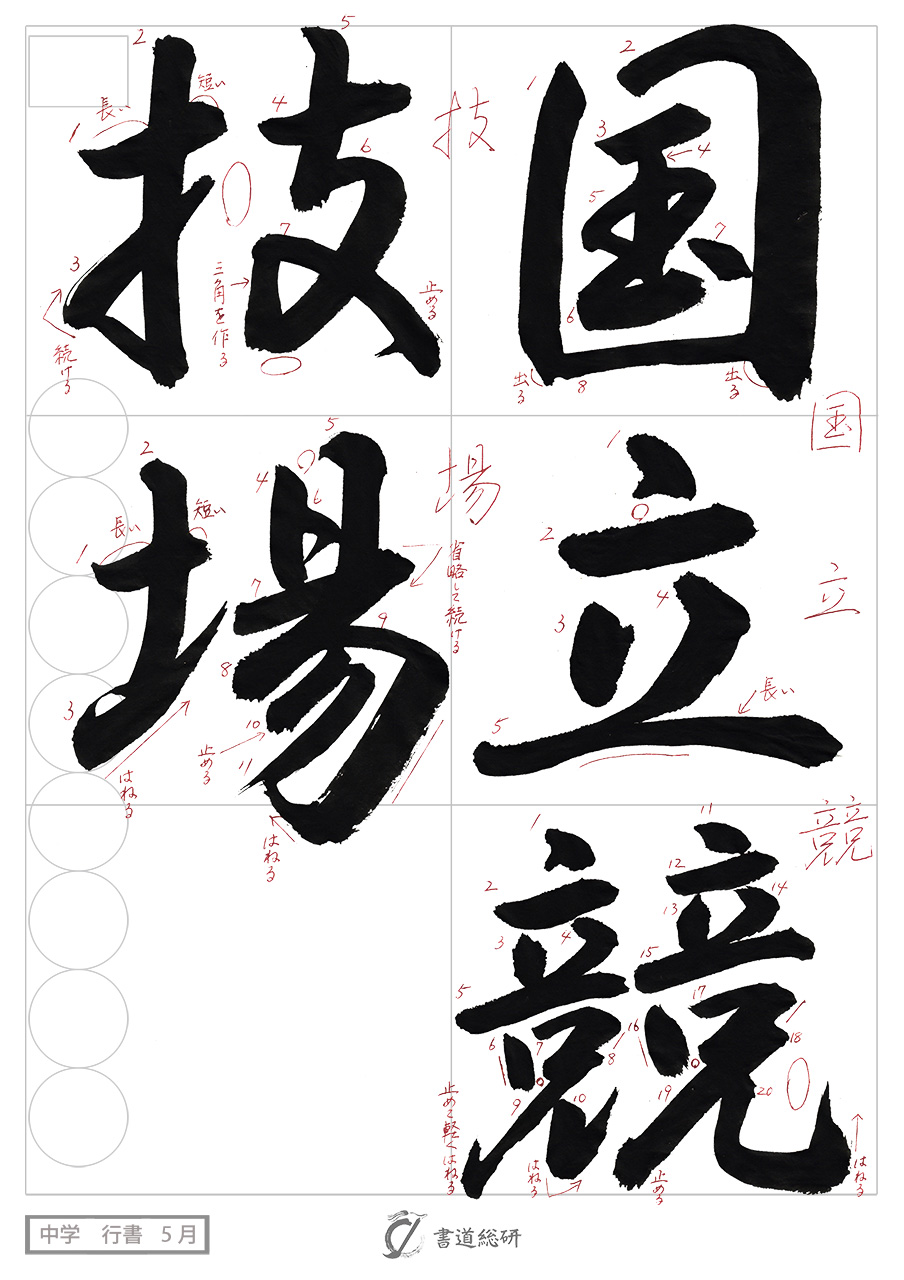 国立競
技場
国
1
2
3
4
5
6
7
8
出る
出る
立
1
2
3
4
5
長い
競
1
2
3
4
5
6
7
8
9
10
11
12
13
14
15
16
17
18
19
20
止めて軽くはねる
はねる
止める
はねる
技
1
2
3
4
5
6
7
長い
短い
続ける
三角を作る
止める
場
1
2
3
4
5
6
7
8
9
10
11
長い
短い
省略して続ける
はねる
止める
はねる
中学 行書 5月
書道総研